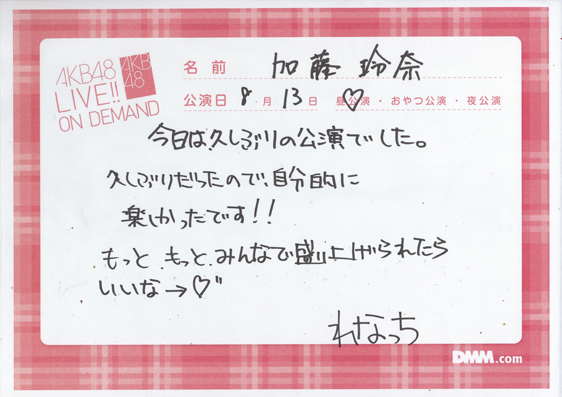 AKB48
LIVE!!
ON DEMAND
AKB
48
名前 加藤 玲奈
公演日 8・月 13日 昼公演・おやつ公演・夜公演
今日は久しぶりの公演でした。
久しぶりだったので、自分的に
楽しかったです!!
もっと、もっと、みんなで盛り上げられたら
いいな→♡"
れなっち
DMM.com